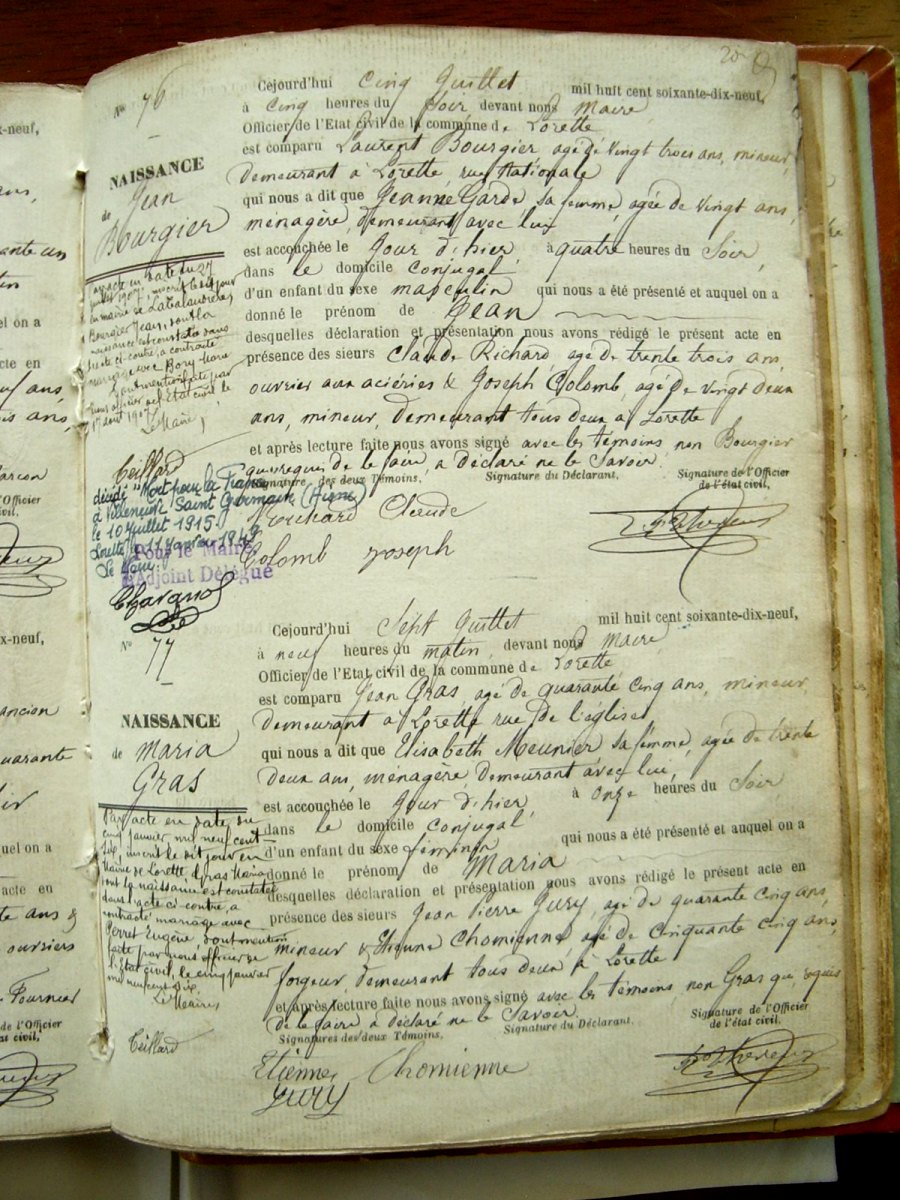 x-neuf,
el on a
cte en
Officier
ivil.
x-neuf,
ancien
uarante
uel on a
acte en
te ans &
ouvriers
Fournier
de l'Officier
at civil,
20
No 76
NAISSANCE
de Jean
Bourgier
Par acte en date du 27
juillet 1907, inscrit le dit jour
en mairie de
Bourgier Jean, dont la
naissance est constatée dans
l'acte ci-contre, a contracté
mariage avec Bory Marie
dont mention faite par
nous officier de l'Etat civil le
17 août 1907.
Le Maire,
Teillard
décédé "Mort pour la France"
à Villeneuve Saint Germain (Aisne)
le 10 juillet 1915.
Lorette le 11 janvier 1949
Le Maire.
Pour le Maire
L'Adjoint Délégué
Cejourd'hui cinq Juillet mil huit cent soixante-dix-neuf,
à cinq heures du soir devant nous Maire
Officier de l'Etat civil de la commune de Lorette
est comparu Laurent Bourgier agé de vingt trois ans, mineur,
demeurant à Lorette, rue Nationale
qui nous a dit que Jeanne Garde sa femme, agée de vingt ans,
ménagère, demeurant avec lui,
est accouchée le jour d'hier, à quatre heures du soir,
dans le domicile conjugal
d'un enfant du sexe masculin qui nous a été présenté et auquel on a
donné le prénom de Jean
desquelles déclaration et présentation nous avons rédigé le présent acte en
présence des sieurs Claude Richard, agé de trente trois ans,
ouvrier aux aciéries & Joseph Colomb, agé de vingt deux
ans, mineur, demeurant tous deux à Lorette
et après lecture faite nous avons signé avec les témoins, non Bourgier
qui requis de le faire, a déclaré ne le savoir.
Signature des deux Témoins, Signature du Déclarant, Signature de l'Officier
de l'état civil,
Richard Claude
Colomb Joseph
No 77
NAISSANCE
de Maria
Gras
Par acte en date du
cinq janvier mil neuf cent
six, inscrit le dit jour en
Mairie de Lorette, Gras Maria
dont la naissance est constatée
dans l'acte ci-contre, a
contracté mariage avec
Perret Eugène, dont mention
faite par nous officier de
l'Etat civil, le cinq janvier
mil neuf cent six.
Le Maire,
Teillard
Cejourd'hui Sept Juillet mil huit cent soixante-dix-neuf,
à neuf heures du matin, devant nous Maire
Officier de l'Etat civil de la commune de Lorette
est comparu Jean Gras agé de quarante cinq ans, mineur
demeurant à Lorette rue de l'église
qui nous a dit que Elisabeth Meunier sa femme, agée de trente
deux ans, ménagère, demeurant avec lui,
est accouchée le jour d'hier, à onze heures du soir
dans le domicile conjugal
d'un enfant du sexe féminin qui nous a été présenté et auquel on a
donné le prénom de Maria
desquelles déclaration et présentation nous avons rédigé le présent acte en
présence des sieurs Jean Pierre Jury, agé de quarante cinq ans
mineur & Etienne Chomienne, agé de cinquante cinq ans,
forgeur, demeurant tous deux à Lorette
et après lecture faite nous avons signé avec les témoins, non Gras qui, requis
de le faire, a déclaré ne le savoir.
Signatures des deux Témoins, Signature du Déclarant, Signature de l'Officier
de l'état civil,
Etienne Chomienne
Jury